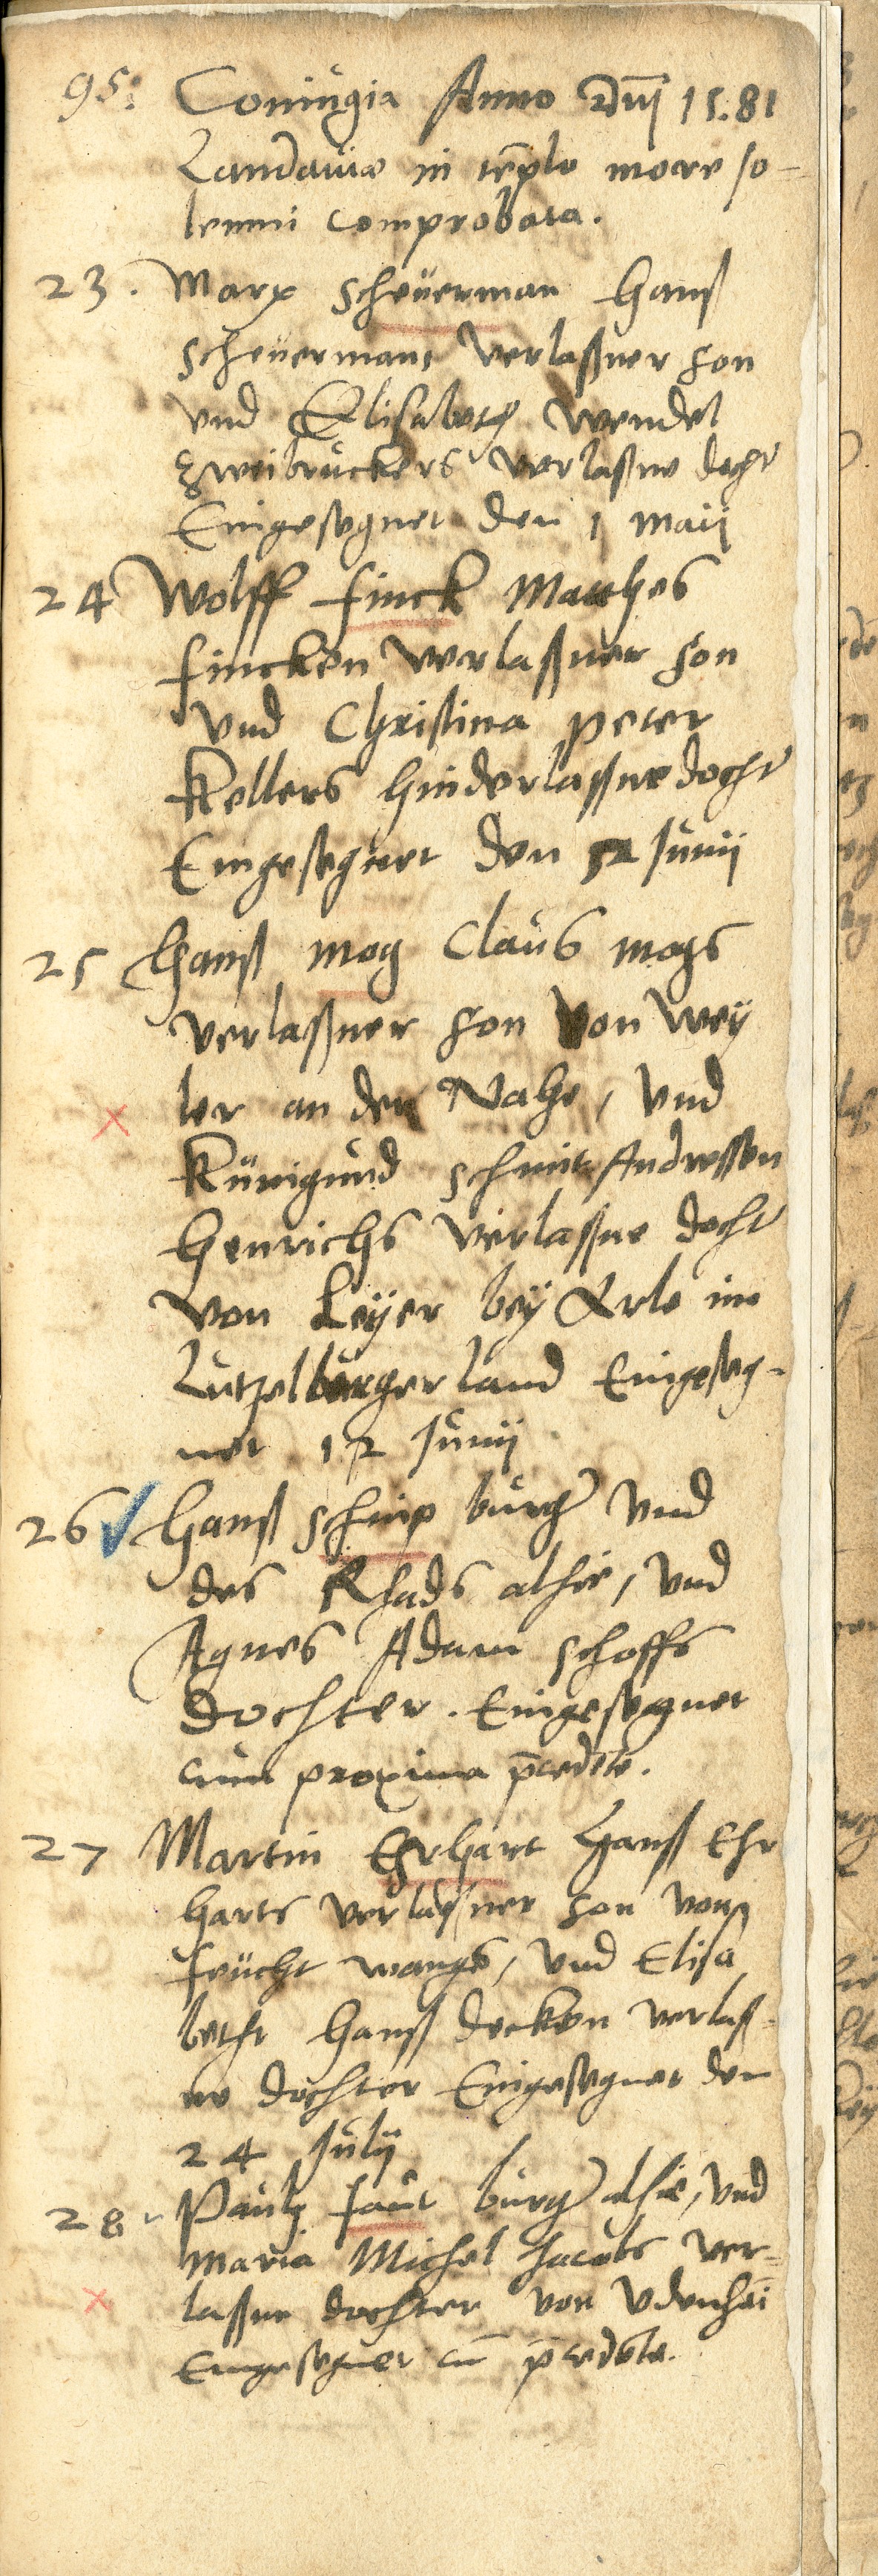 95. Coniugia Anno dnj 15.81
Landauiæ in tēplo more so-
lemni comprobata.
23. Marx Scheuerman Hanß
Scheuermans verlaßner son
vnd Elisabeth Wendel
Zweibruckers verlaßne docht
Eingesegnet den 1 Maij
24 Wolff Finck Matthes
Fincken verlaßner son
vnd Christina Peter
Kellers hinderlaßne docht
Eingesegnet den 12 Junij
25 Hanß Mog Claus Mogs
verlaßner son von Wey
ler an der Nahe, vnd
Künigund Schmit Andressen
Henrichs verlaßne docht
von Leyer bey Arle im
Lutzelburger land Eingeseg-
net 12 Junij
26 Hanß Schimp burger vnd
des Rhads alhie, vnd
Agnes Adam Schoffs
dochter. Eingesegnet
cum proxima p̄cedēte.
27 Martin Ehrhart Hanß Ehr
harts verlaßner son von
Feucht wange, vnd Elisa
betht Hanß Decken verlaß-
ne dochter Eingesegnet den
24 Julij
28 Paulus Faut burger alhie, vnd
Maria Michel Jacobs ver-
laßne dochter von Vdenhei
Eingesegnet cū p̄cedēte.